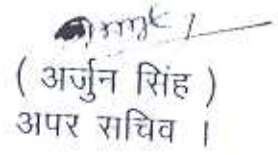 ( अर्जुन सिंह )
अपर सचिव ।